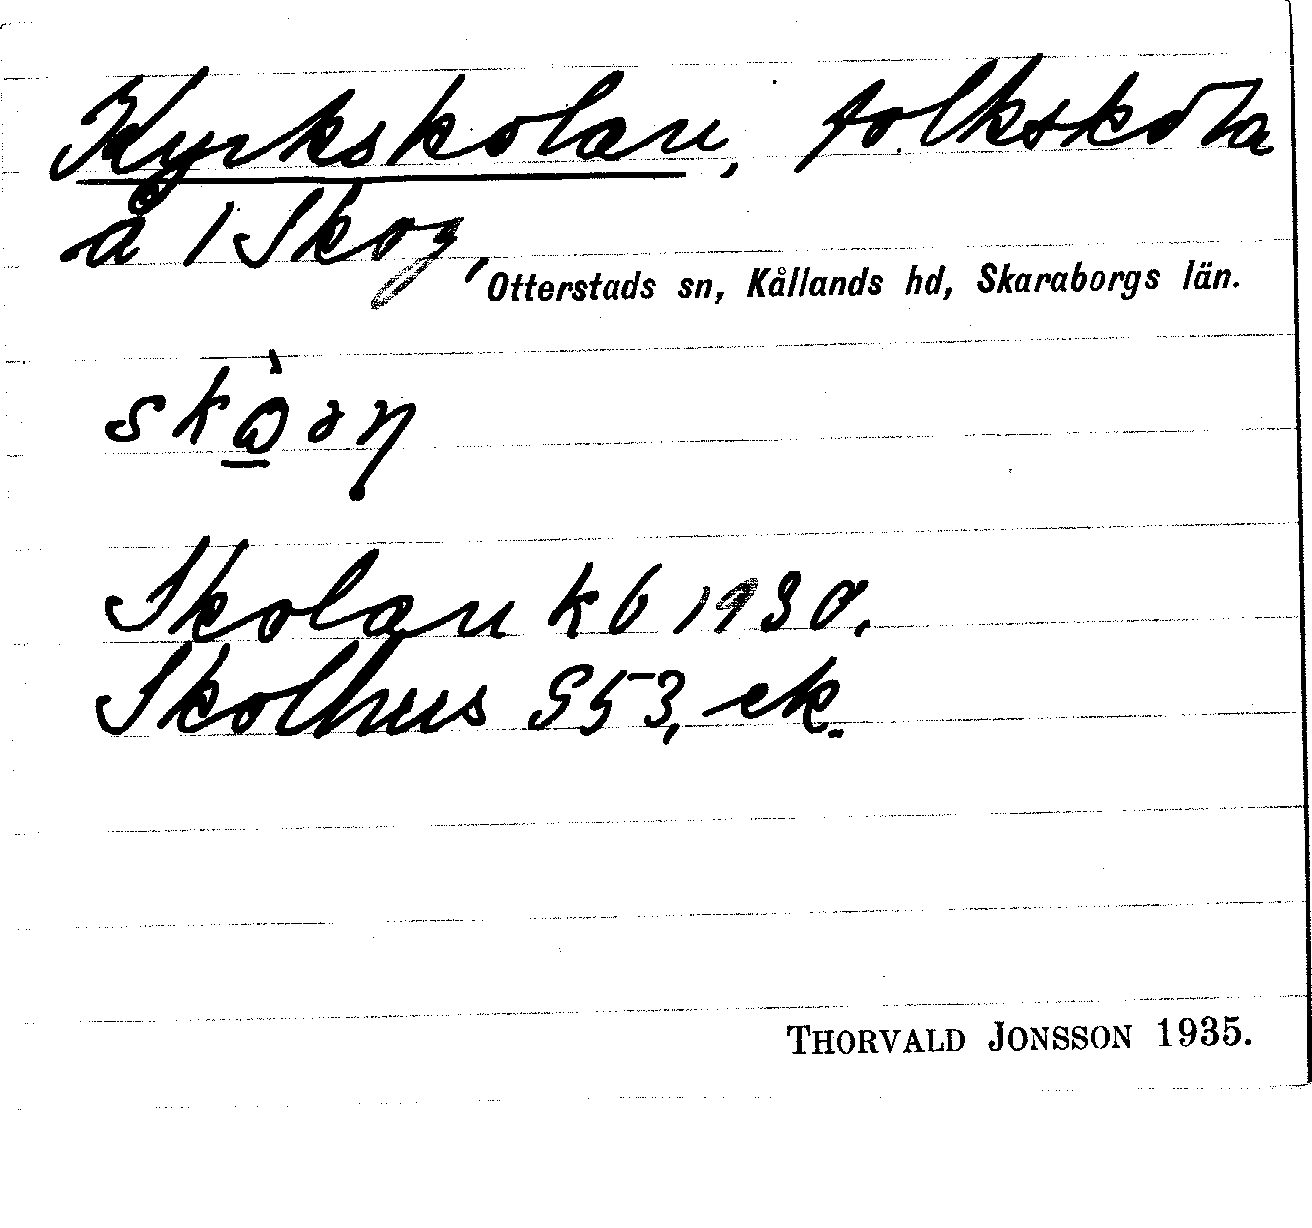 Kyrkskolan, folkskola
å 1 Skog,
Otterstads sn, Kållands hd, Skaraborgs län.
Skolan kb 1930.
Skolhus G53, ek.
THORVALD JONSSON 1935.